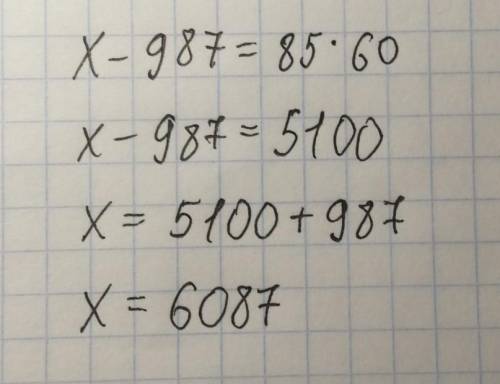 x - 987 = 85 · 60
x - 987 = 5100
x = 5100 + 987
x = 6087